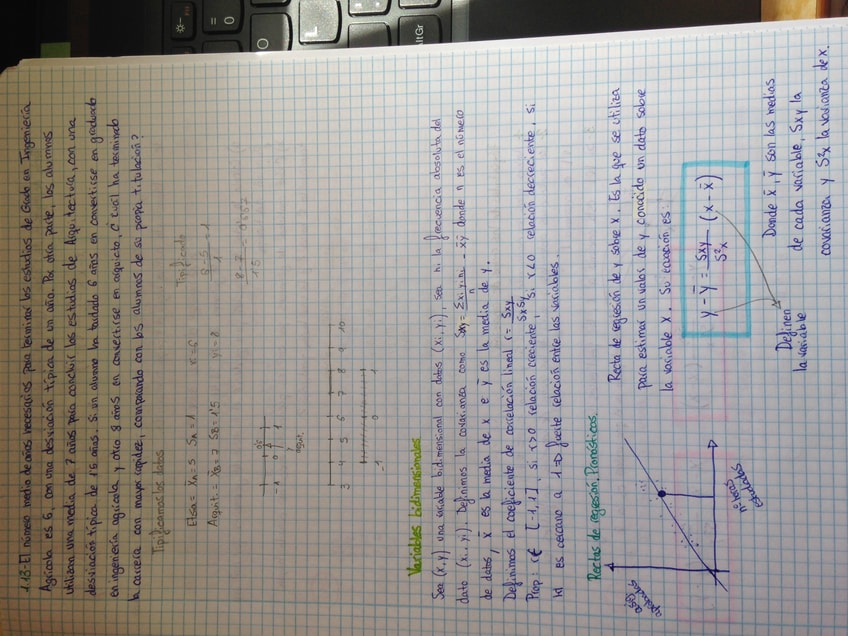 1.13-El número medio de años necesarios para terminar los estudios de Grado en Ingeniería
Agrícola es 6, con una desviación típica de un año. Por otra parte, los alumnos
utilizan una media de 7 años para concluir los estudios de Arquitectura, con una
desviación típica de 1'5 años. Si un alumno ha tardado 6 años en convertirse en graduado
en ingeniería agrícola y otro 8 años en convertirse en arquitecto, ¿ cuál ha terminado
la carrera con mayor rapidez, comparando con los alumnos de su propia titulación?
Tipificamos los datos
Tipificado
= 5 = 1 x = 6
= 7 SB = 1'5 = 8
-1 0 1
3 4 5 6 7 8 9 10
-1 0 1
Variables bidimensionales
Sea (x,y) una variable bidimensional con datos (xi, yi), sea ni la frecuencia absoluta del
dato (xi, yi). Definimos la covarianza como Sxy = Σxi·yi·ni / n - x̄ȳ donde n es el número
de datos, x̄ es la media de x e ȳ es la media de y.
Definimos el coeficiente de correlación lineal r = Sxy / SxSy
Prop: r∈ [-1,1], si r>0 relación creciente, si r<0 relación decreciente, si
|r| es cercano a 1 => fuerte relación entre las variables.
Rectas de regresión. Pronósticos.
Recta de regresión de y sobre x. Es la que se utiliza
para estimar un valor de y conocido un dato sobre
la variable x. Su ecuación es:
y - ȳ = Sxy / S²x (x - x̄)
Definen
la variable
Donde x̄, ȳ son las medias
de cada variable, Sxy la
covarianza y S²x la varianza de x.
nºhoras
estudiadas
AltGr